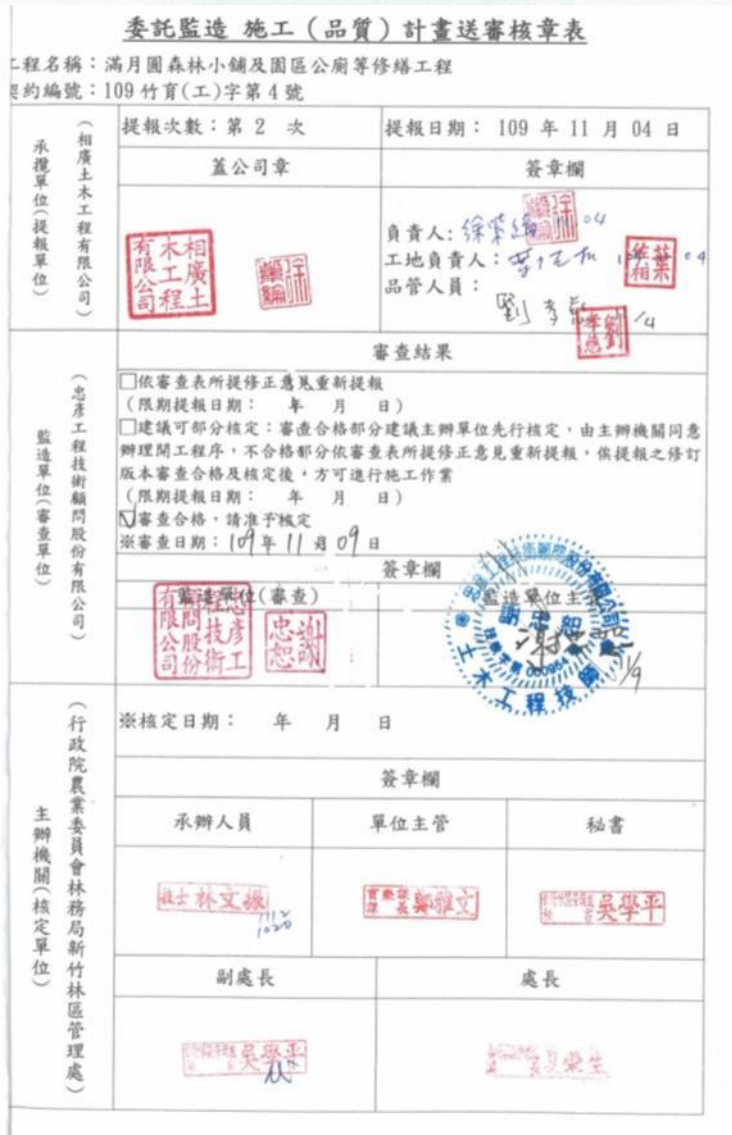 委託監造 施工（品質）計畫送審核章表
工程名稱：滿月圓森林小舖及園區公廁等修繕工程
契約編號：109 竹育(工)字第 4 號
承攬單位(提報單位)
（相廣土木工程有限公司）
提報次數：第 2 次
提報日期： 109 年 11 月 04 日
蓋公司章
簽章欄
相廣土木工程有限公司
負責人：
工地負責人：
品管人員：
監造單位(審查單位)
（忠彥工程技術顧問股份有限公司）
審查結果
□依審查表所提修正意見重新提報
（限期提報日期： 年 月 日）
□建議可部分核定：審查合格部分建議主辦單位先行核定，由主辦機關同意
辦理開工程序，不合格部分依審查表所提修正意見重新提報，俟提報之修訂
版本審查合格及核定後，方可進行施工作業
（限期提報日期： 年 月 日）
☑審查合格，請准予核定
※審查日期：109年 11 月 09 日
簽章欄
監造單位(審查)
監造單位主
忠彥工程技術顧問股份有限公司
謝忠恕
謝忠恕
土木工程技師
11/9
主辦機關(核定單位)
（行政院農業委員會林務局新竹林區管理處）
※核定日期： 年 月 日
簽章欄
承辦人員
單位主管
秘書
技士 林文振
1112
1020
鄭雅文
吳學平
副處長
處長
吳學平